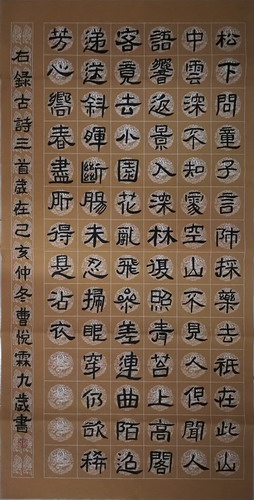 松下問童子言師採藥去祇在此山
中雲深不知處空山不見人但聞人
語響返景入深林復照青苔上高閣
客竟去小園花亂飛參差連曲陌迢
遞送斜暉斷腸未忍掃眼穿仍欲稀
芳心嚮春盡所得是沾衣
右錄古詩三首歲在己亥仲冬曹悅霖九歲書